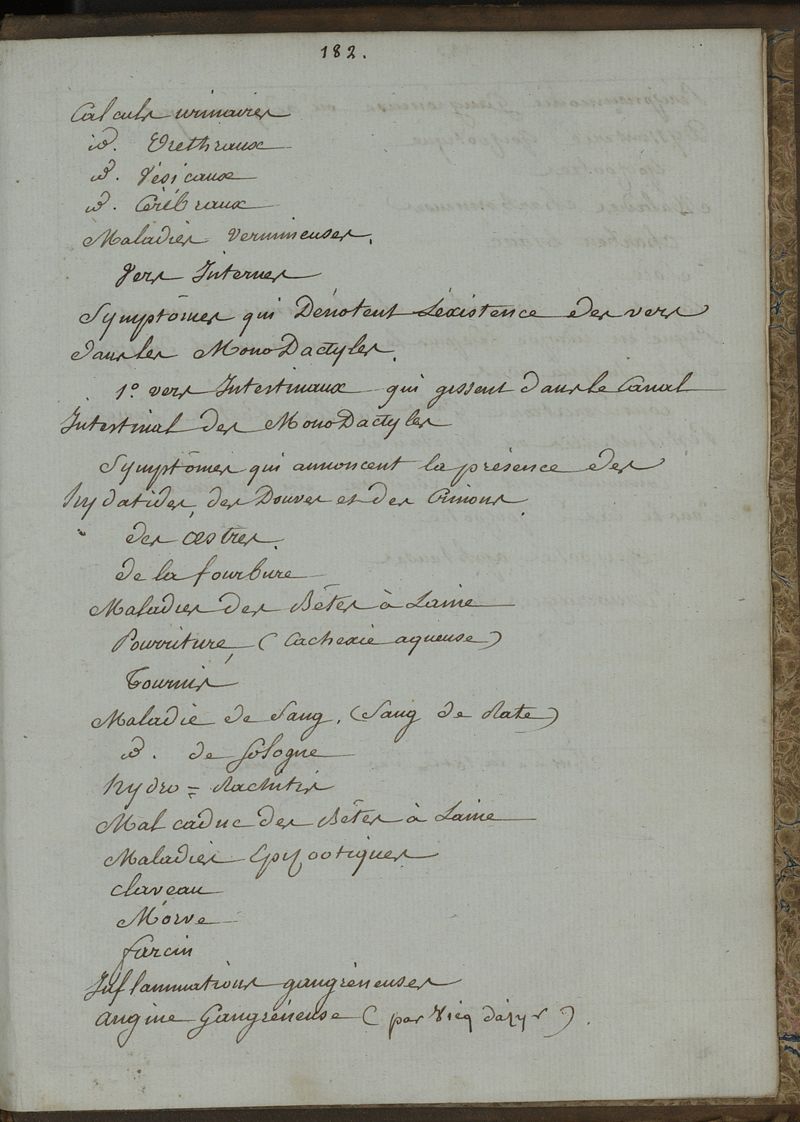 182.
Calculs urinaires
id. Urethraux
id. Vésicaux
id. Cérébraux
Maladies Vermineuses.
Vers Internes
Symptômes qui Dénotent L'éxistence des vers
dans les MonoDactyles.
1° vers Intestinaux qui gissent dans le Canal
Intestinal des MonoDactyles
Symptômes qui annoncent la présence des
hydatides, des Douves et des Crinons.
des œstres.
de la fourbure
Maladies des Bêtes à Laine
Pourriture, (Cachexie aqueuse)
Tournis
Maladie de Sang, (Sang de Rate)
id. de Sologne
hydro = Rachitis
Mal caduc des Bêtes à Laine
Maladies Epizootiques
Claveau
Morve
farcin
Inflammations gangréneuses
angine Gangréneuse (par Vicq d'azyr).